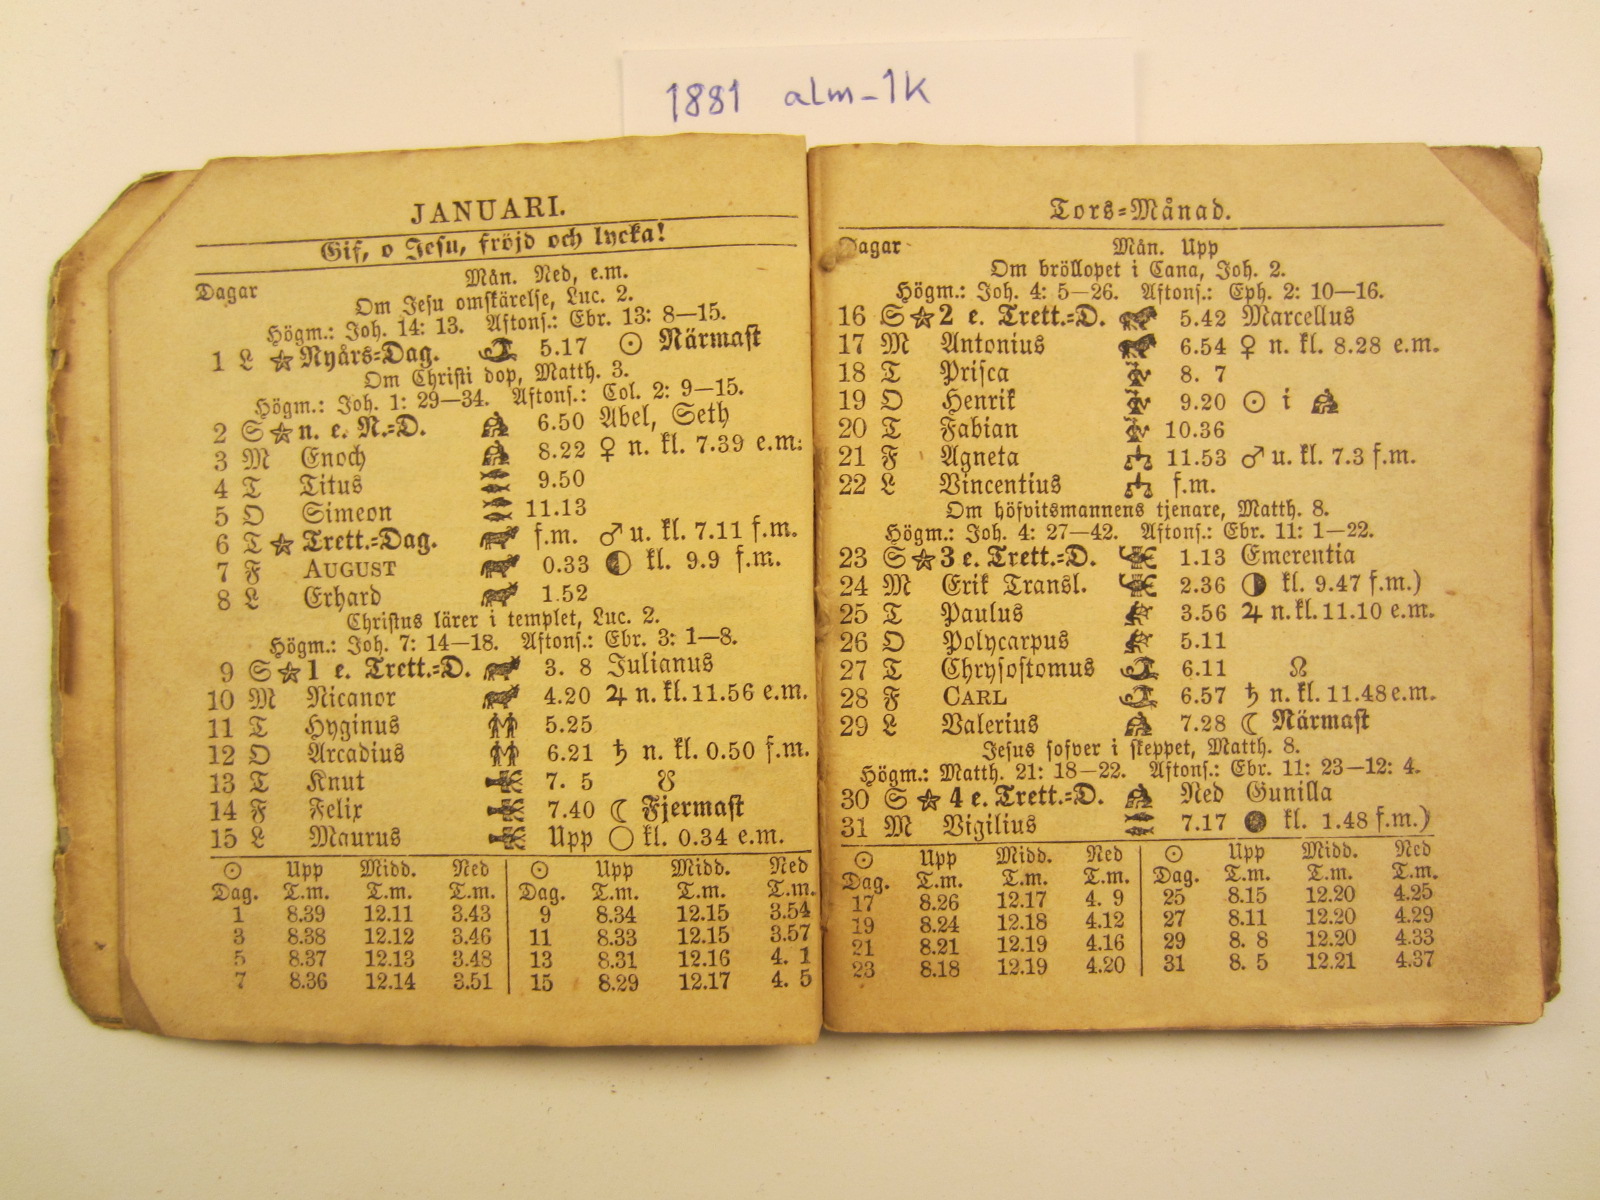 1881 alm-1K
JANUARI.
Gif, o Jesu, fröjd och lycka!
Dagar Mån. Ned, e.m.
Om Jesu omskärelse, Luc. 2.
Högm.: Joh. 14: 13. Aftons.: Ebr. 13: 8—15.
1 L ☆ Nyårs-Dag. 5.17 ☉ Närmast
Om Christi dop, Matth. 3.
Högm.: Joh. 1: 29—34. Aftons.: Col. 2: 9—15.
2 S ☆ n. e. N.-D. 6.50 Abel, Seth
3 M Enoch 8.22 ♀ n. kl. 7.39 e.m.
4 T Titus 9.50
5 O Simeon 11.13
6 T ☆ Trett.-Dag. f.m. ♂ u. kl. 7.11 f.m.
7 F AUGUST 0.33 ◐ kl. 9.9 f.m.
8 L Erhard 1.52
Christus lärer i templet, Luc. 2.
Högm.: Joh. 7: 14—18. Aftons.: Ebr. 3: 1—8.
9 S ☆ 1 e. Trett.-D. 3. 8 Julianus
10 M Nicanor 4.20 ♃ n. kl. 11.56 e.m.
11 T Hyginus 5.25
12 O Arcadius 6.21 ♄ n. kl. 0.50 f.m.
13 T Knut 7. 5 ☋
14 F Felix 7.40 ☾ Fjermast
15 L Maurus Upp ○ kl. 0.34 e.m.
☉ Upp Midd. Ned ☉ Upp Midd. Ned
Dag. T.m. T.m. T.m. Dag. T.m. T.m. T.m.
1 8.39 12.11 3.43 9 8.34 12.15 3.54
3 8.38 12.12 3.46 11 8.33 12.15 3.57
5 8.37 12.13 3.48 13 8.31 12.16 4. 1
7 8.36 12.14 3.51 15 8.29 12.17 4. 5
Tors-Månad.
Dagar Mån. Upp
Om bröllopet i Cana, Joh. 2.
Högm.: Joh. 4: 5—26. Aftons.: Eph. 2: 10—16.
16 S ☆ 2 e. Trett.-D. 5.42 Marcellus
17 M Antonius 6.54 ♀ n. kl. 8.28 e.m.
18 T Prisca 8. 7
19 O Henrik 9.20 ☉ i
20 T Fabian 10.36
21 F Agneta 11.53 ♂ u. kl. 7.3 f.m.
22 L Vincentius f.m.
Om höfvitsmannens tjenare, Matth. 8.
Högm.: Joh. 4: 27—42. Aftons.: Ebr. 11: 1—22.
23 S ☆ 3 e. Trett.-D. 1.13 Emerentia
24 M Erik Transl. 2.36 ◑ kl. 9.47 f.m.)
25 T Paulus 3.56 ♃ n. kl. 11.10 e.m.
26 O Polycarpus 5.11
27 T Chrysostomus 6.11 ☊
28 F CARL 6.57 ♄ n. kl. 11.48 e.m.
29 L Valerius 7.28 ☾ Närmast
Jesus sofver i skeppet, Matth. 8.
Högm.: Matth. 21: 18—22. Aftons.: Ebr. 11: 23—12: 4.
30 S ☆ 4 e. Trett.-D. Ned Gunilla
31 M Vigilius 7.17 ● kl. 1.48 f.m.)
☉ Upp Midd. Ned ☉ Upp Midd. Ned
Dag. T.m. T.m. T.m. Dag. T.m. T.m. T.m.
17 8.26 12.17 4. 9 25 8.15 12.20 4.25
19 8.24 12.18 4.12 27 8.11 12.20 4.29
21 8.21 12.19 4.16 29 8. 8 12.20 4.33
23 8.18 12.19 4.20 31 8. 5 12.21 4.37